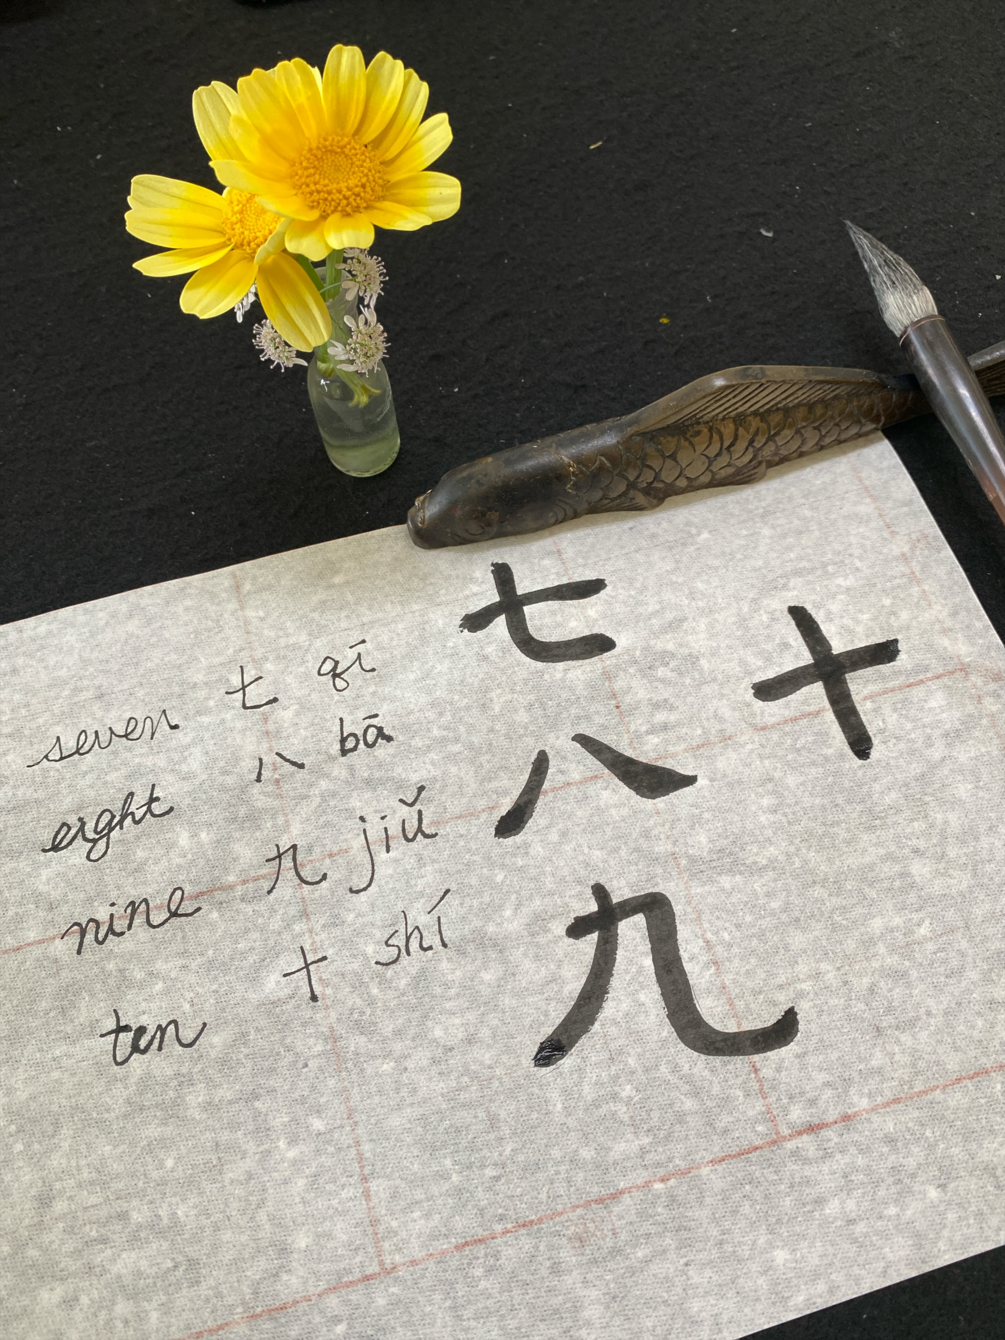 seven 七 qī
eight 八 bā
nine 九 jiǔ
ten 十 shí
七
八
九
十